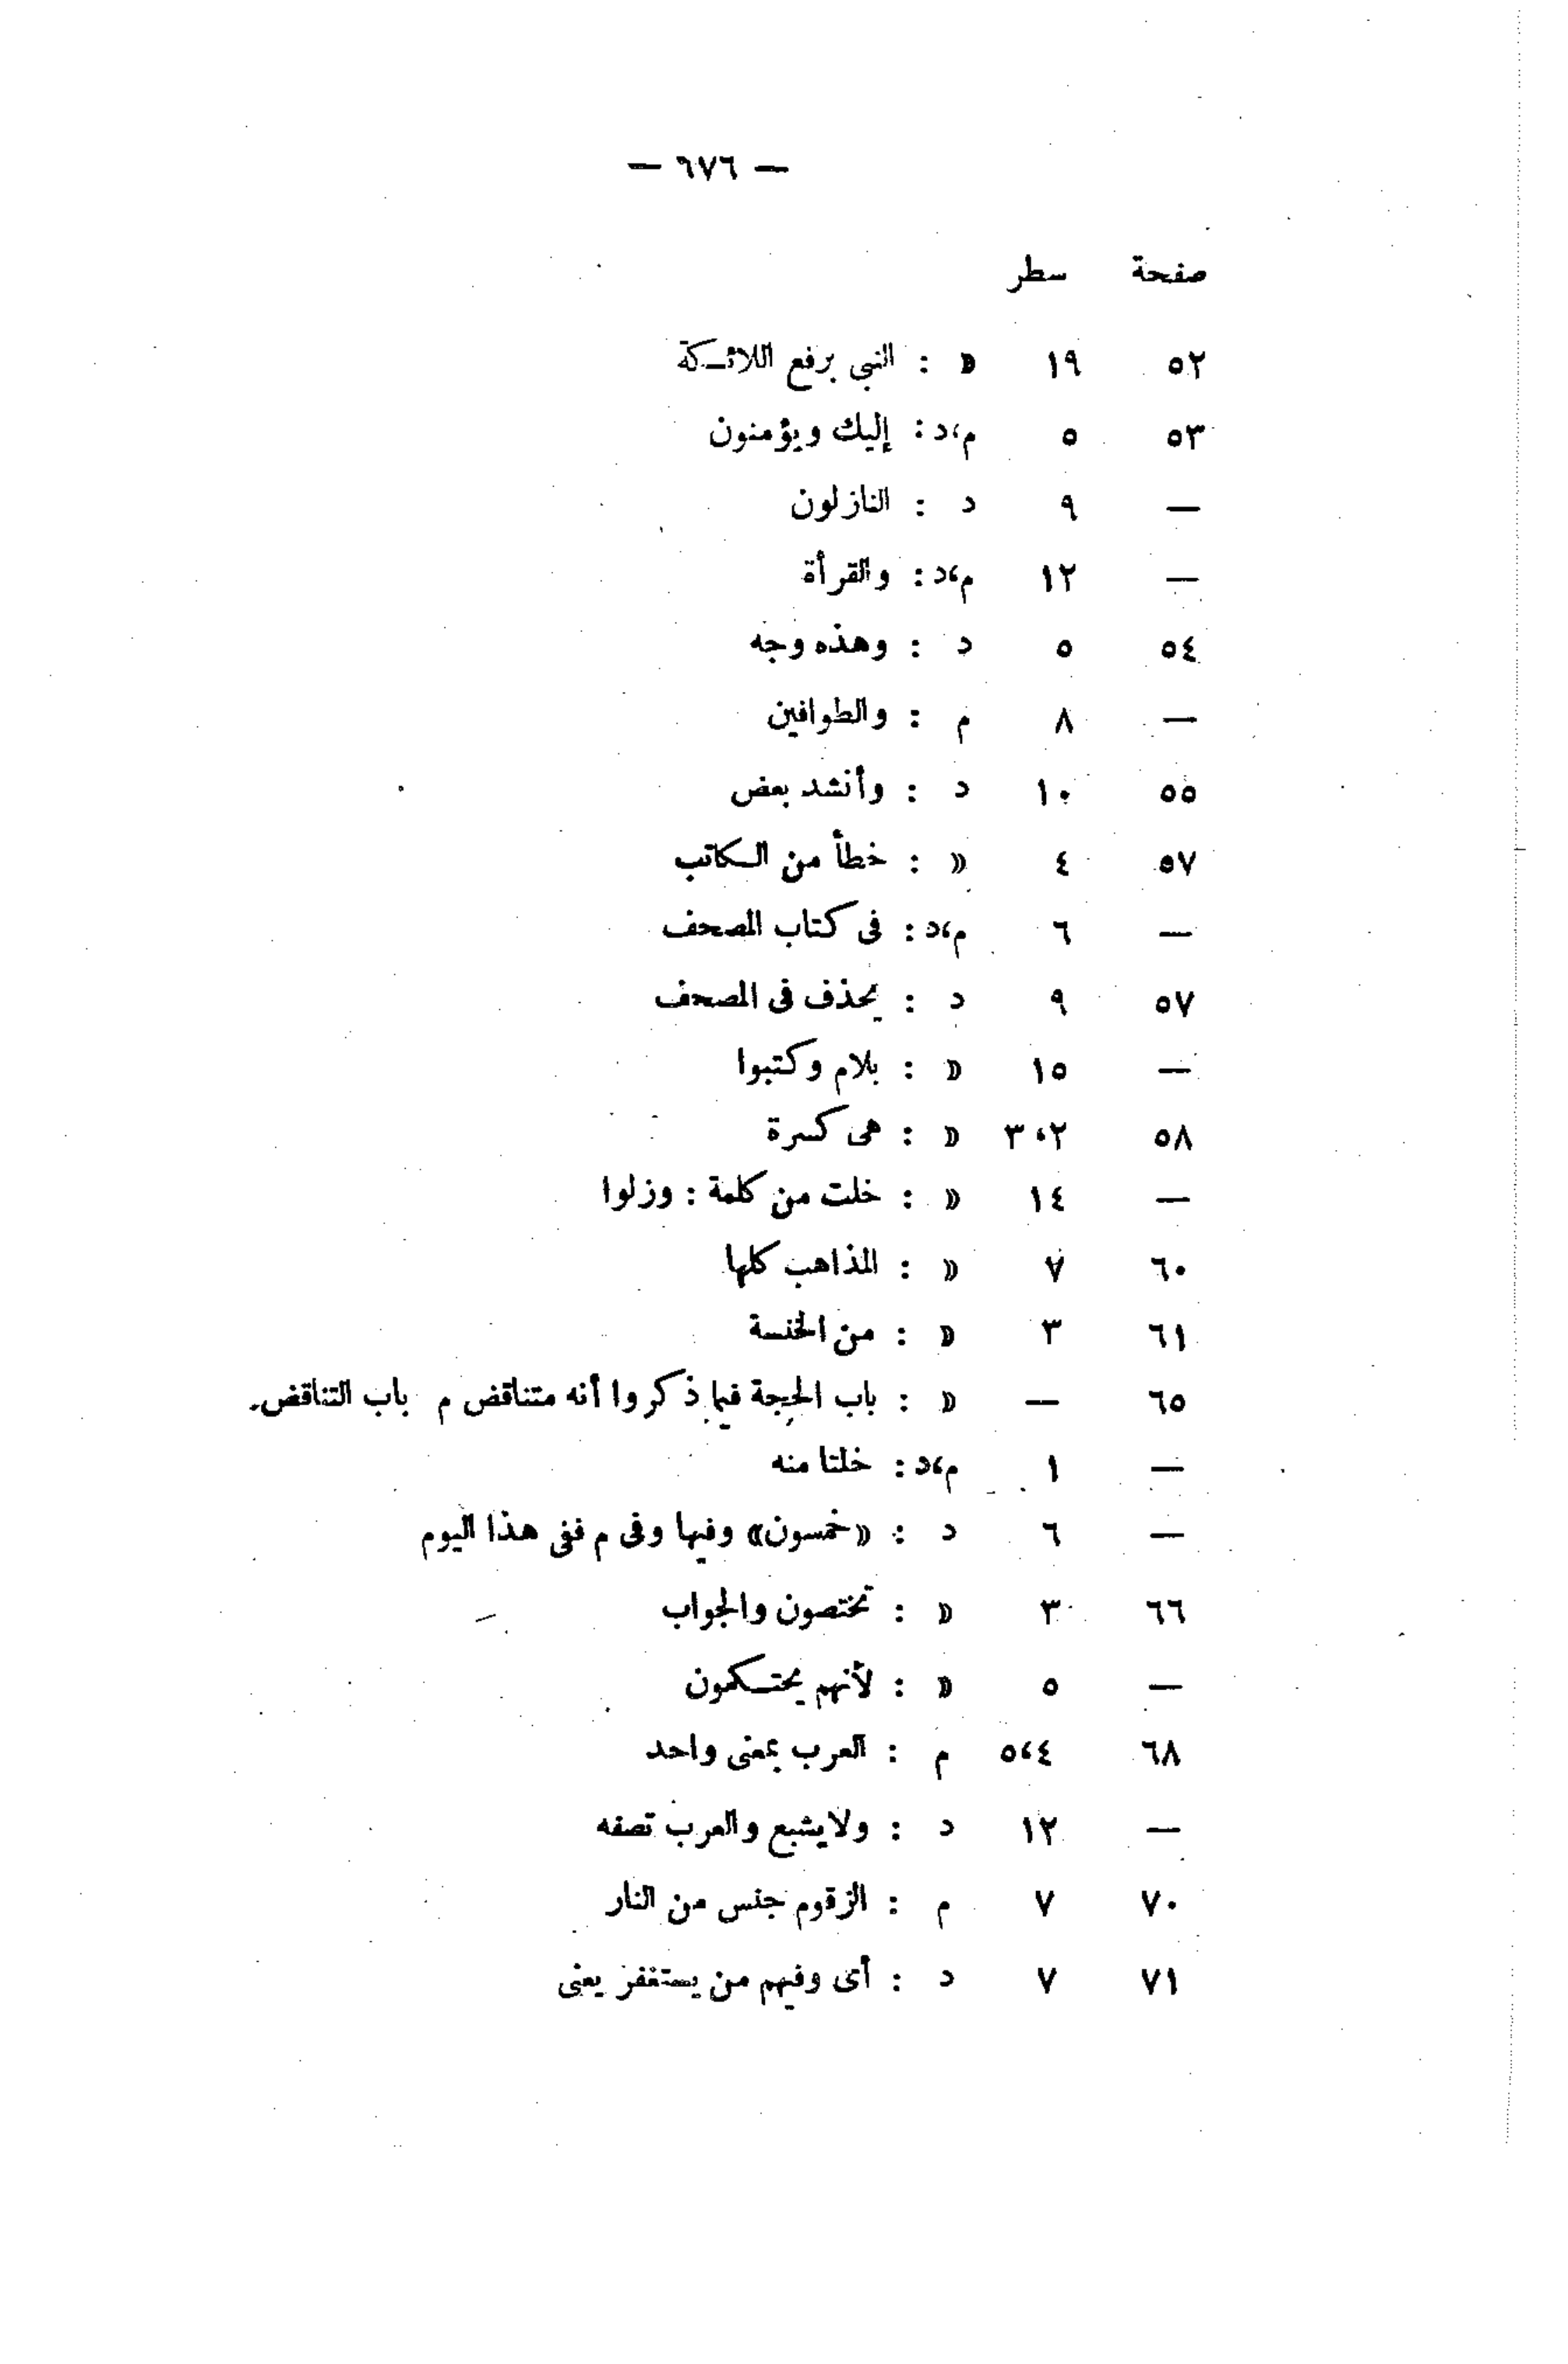 — ٦٧٦ —
صفحة سطر
٥٢ ١٩ « : النبى برفع الملائكة
٥٣ ٥ م،د : إليك ويؤمنون
— ٩ د : النازلون
— ١٢ م،د : والقرأة
٥٤ ٥ د : وهذه وجه
— ٨ م : والطوافين
٥٥ ١٠ د : وأنشد بعض
٥٧ ٤ « : خطأ من الكاتب
— ٦ م،د : فى كتاب المصحف
٥٧ ٩ د : يحذف فى المصحف
— ١٥ « : بلام وكتبوا
٥٨ ٢،٣ « : هى كسرة
— ١٤ « : خلت من كلمة : وزلوا
٦٠ ٧ « : المذاهب كلها
٦١ ٣ « : من الخنسة
٦٥ — « : باب الحجة فيما ذكروا أنه متناقض م باب التناقض.
— ١ م،د : خلتا منه
— ٦ د : «خمسون» وفيها وفى م ففى هذا اليوم
٦٦ ٣ « : تختصون والجواب
— ٥ « : لأنهم يحتكمون
٦٨ ٤،٥ م : العرب بمعنى واحد
— ١٢ د : ولايشبع والعرب تصفه
٧٠ ٧ م : الزقوم جنس من النار
٧١ ٧ د : أى وفيهم من يستغفر يعنى